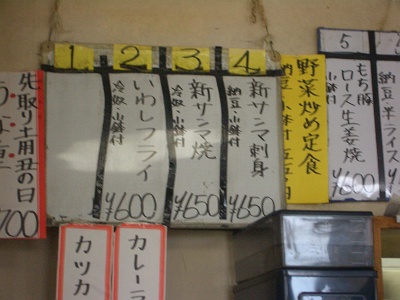 1
2
いわしフライ
冷奴・小鉢付
¥600
3
新サンマ焼
冷奴・小鉢付
¥650
4
新サンマ刺身
納豆・小鉢付
¥650
野菜炒め定食
5
もち豚
ロース生姜焼
小鉢付
¥600
納豆
ライス
先取り土用丑の日
700
カツカ
カレーラ